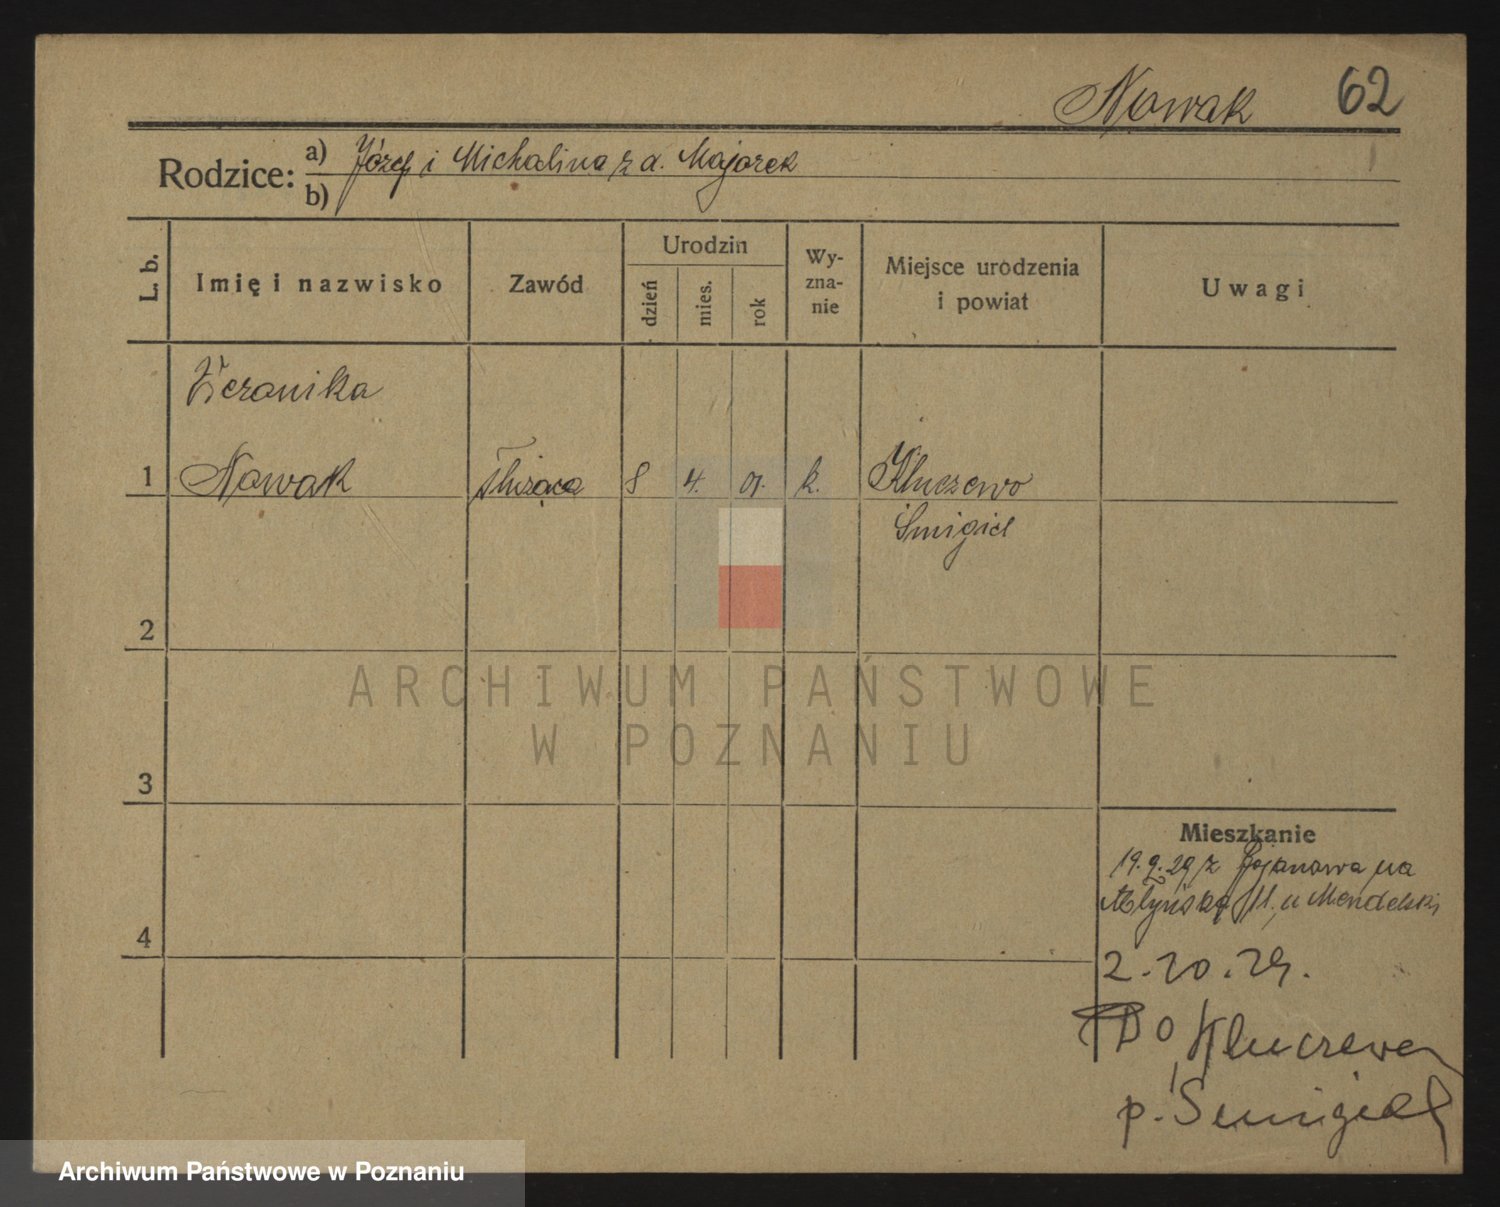 Nowak 62
Rodzice: a) Józef i Michalina z d. Majorek
b)
L. b.
Imię i nazwisko
Zawód
Urodzin
dzień
mies.
rok
Wy-
zna-
nie
Miejsce urodzenia
i powiat
Uwagi
Weronika
1 Nowak służąca 8 4. 01. k. Kluczewo
Śmigiel
2
3
4
ARCHIWUM PAŃSTWOWE
W POZNANIU
Mieszkanie
19.9.29 z Bojanowa na
Młyńską 11, u Mendelski
2.10.29.
Do Kluczewa
p. Śmigiel
Archiwum Państwowe w Poznaniu